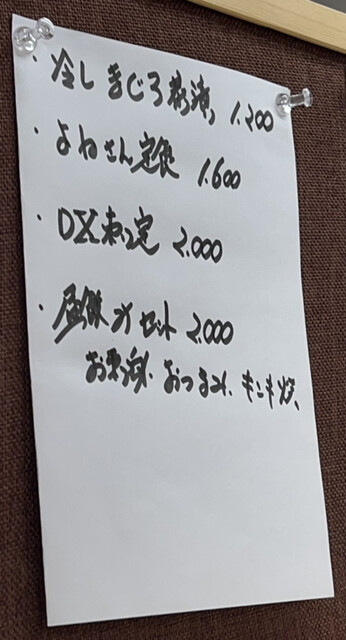 ・冷しまぐろ 1.200
・よねさん定食 1.600
・DX刺定 2.000
・昼飲みセット 2.000
お刺身、おつまみ、キンキ焼、